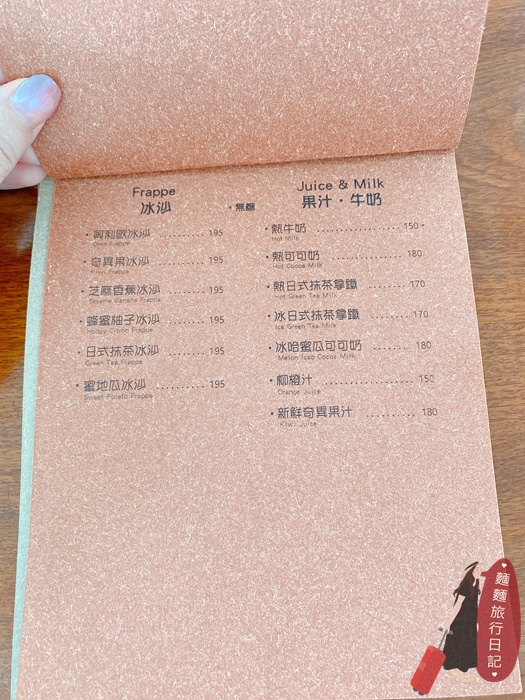 Frappe
冰沙
•無糖
• 奧利歐冰沙 .......... 195
Oreo Frappe
• 奇異果冰沙 .......... 195
Kiwi Frappe
• 芝麻香蕉冰沙 ........ 195
Sesame Banana Frappe
• 蜂蜜柚子冰沙 ........ 195
Honey Citron Frappe
• 日式抹茶冰沙 ........ 195
Green Tea Frappe
• 蜜地瓜冰沙 .......... 195
Sweet Potato Frappe
Juice & Milk
果汁・牛奶
• 熱牛奶 .................. 150 •
Hot Milk
• 熱可可奶 ................ 180
Hot Cocoa Milk
• 熱日式抹茶拿鐵 .......... 170
Hot Green Tea Milk
• 冰日式抹茶拿鐵 .......... 170
Ice Green Tea Milk
• 冰哈蜜瓜可可奶 .......... 180
Melon Iced Cocoa Milk
• 柳橙汁 .................. 150
Orange Juice
• 新鮮奇異果汁 ............ 180
Kiwi Juice
麵麵旅行日記